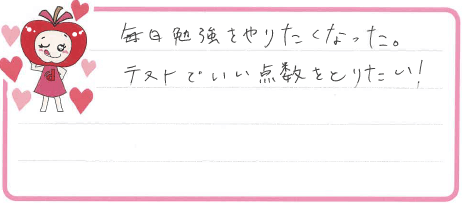 毎日勉強をやりたくなった。
テストでいい点数をとりたい!